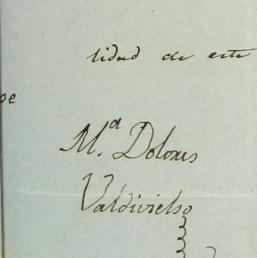 lidad de este
se
M.ª Dolores
Valdivielso